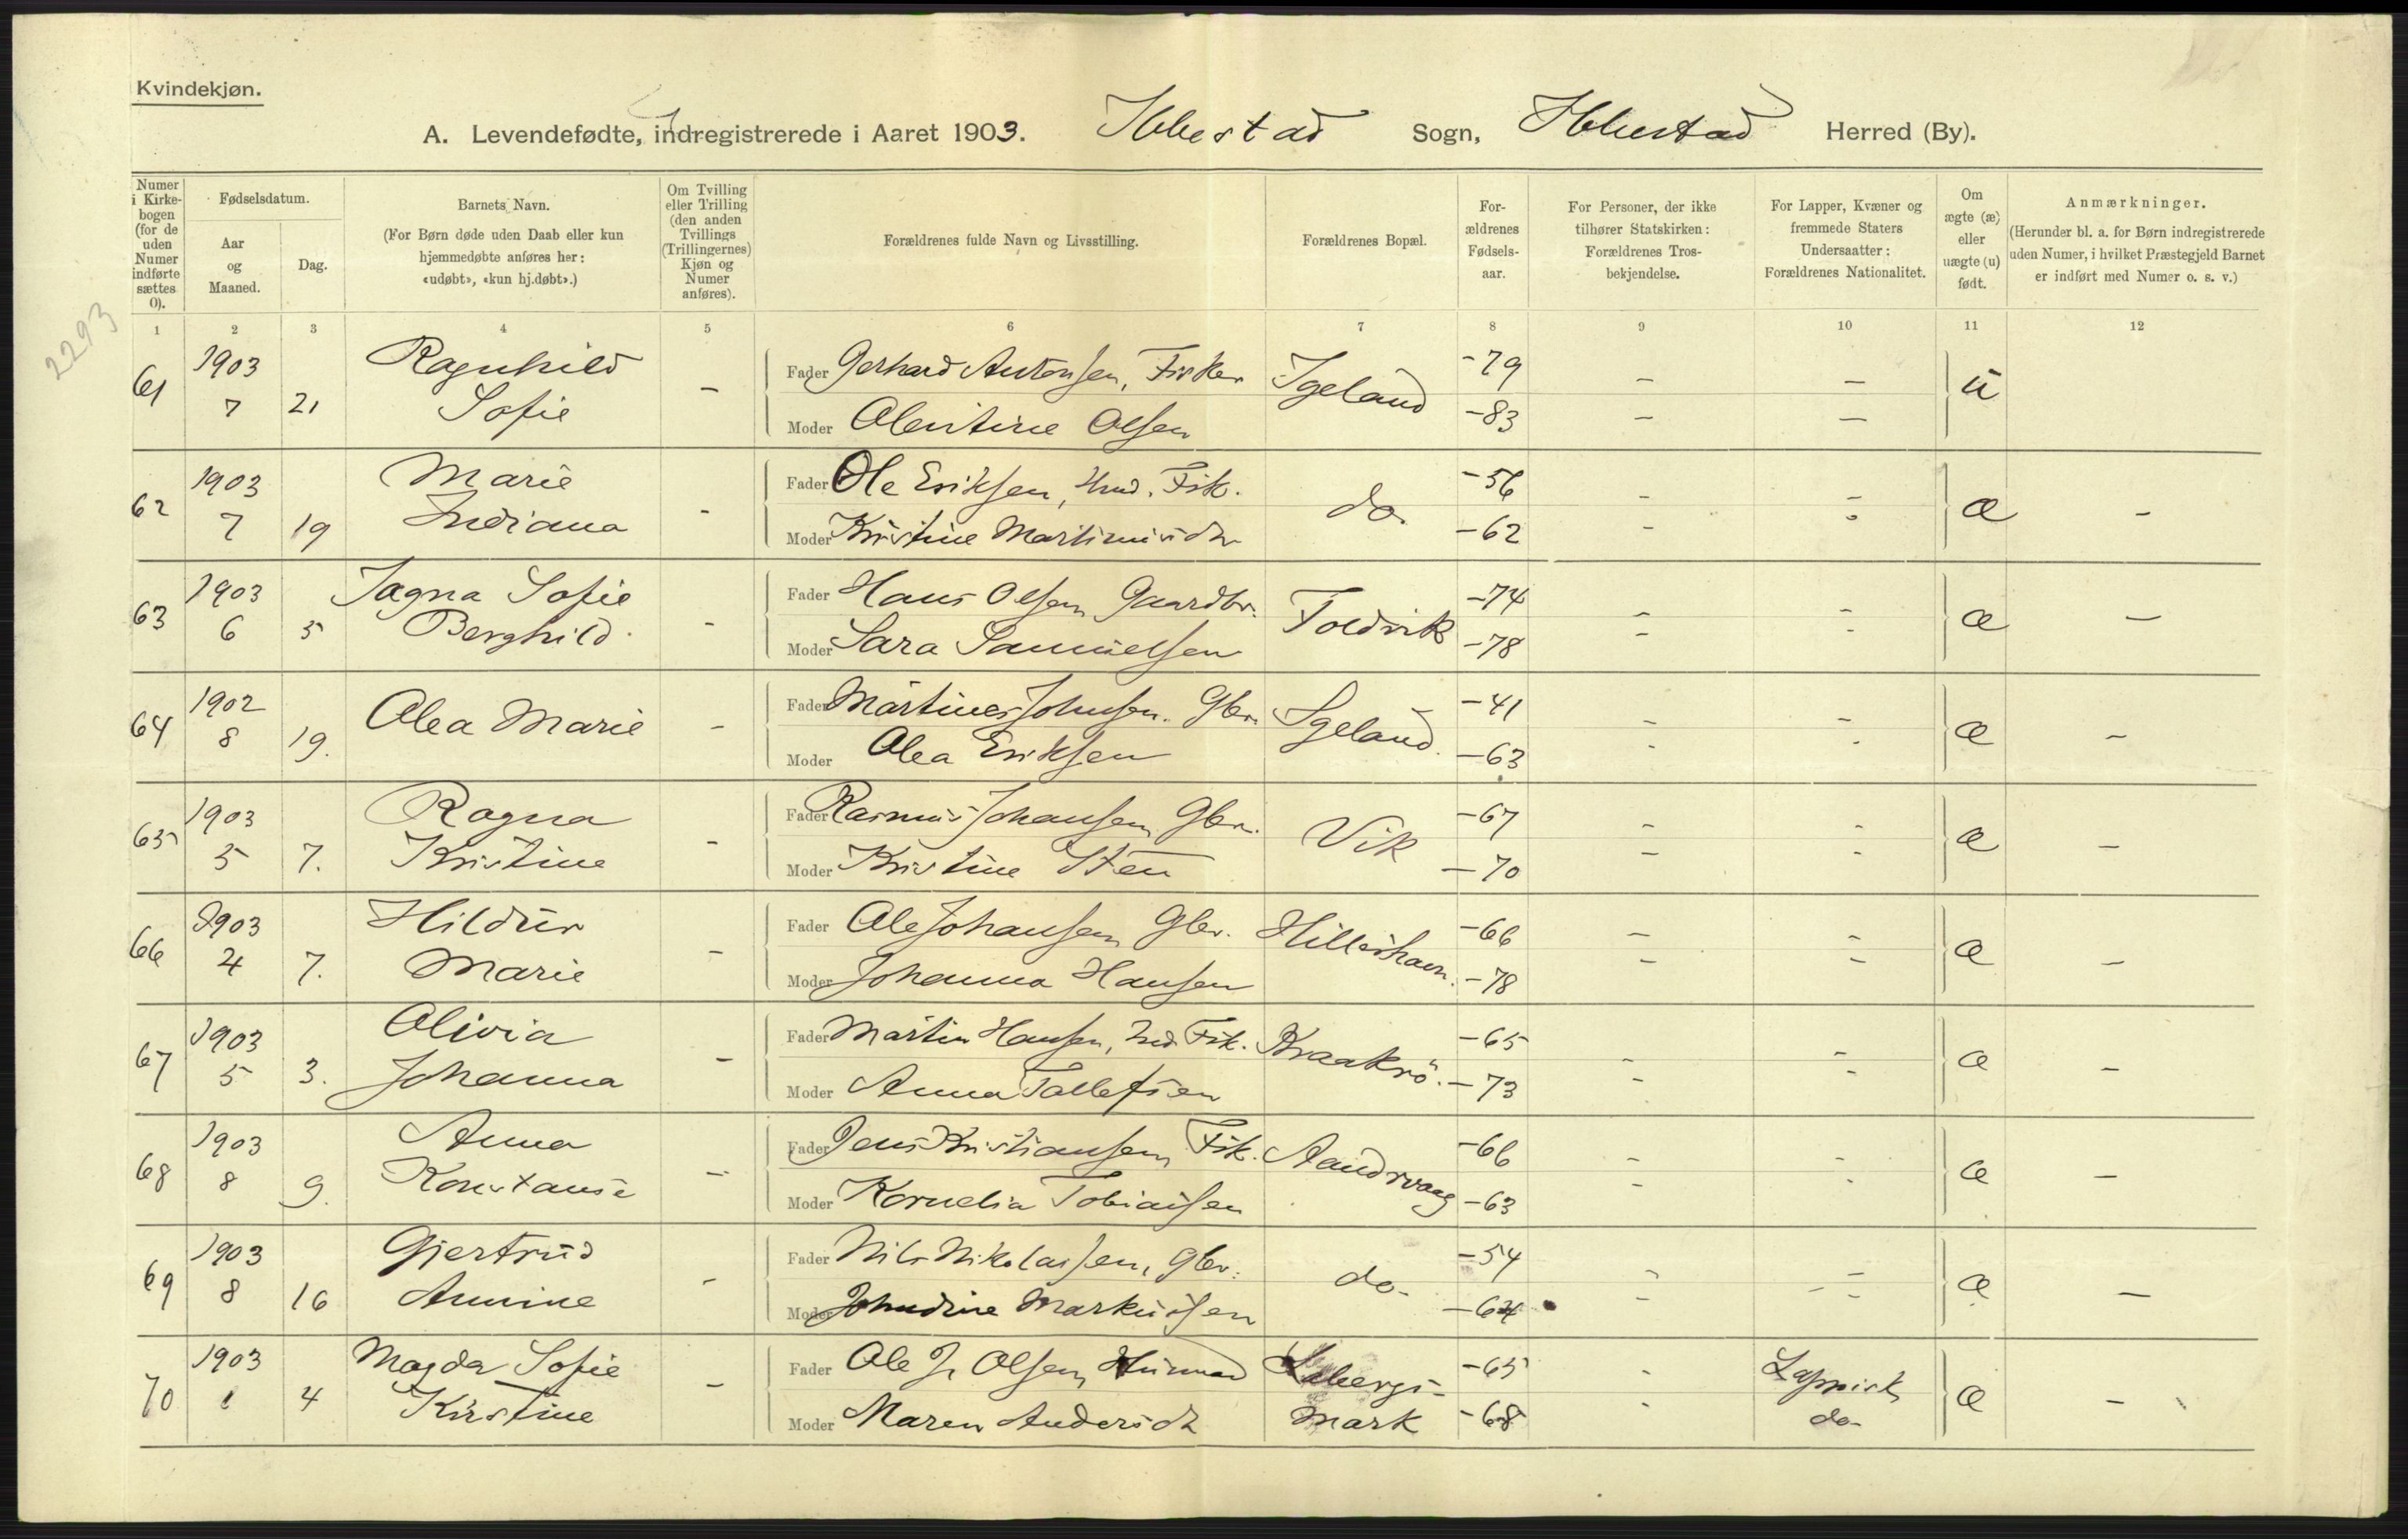 Kvindekjøn.
A. Levendefødte, indregistrerede i Aaret 1903. Ibbestad Sogn, Ibbestad Herred (By).
Numer i Kirkebogen (for de uden Numer indførte sættes 0).
Fødselsdatum.
Aar og Maaned.
Dag.
Barnets Navn.
(For Børn døde uden Daab eller kun hjemmedøbte anføres her: «udøbt», «kun hj.døbt».)
Om Tvilling eller Trilling (den anden Tvillings (Trillingernes) Kjøn og Numer anføres).
Forældrenes fulde Navn og Livsstilling.
Forældrenes Bopæl.
For-ældrenes Fødsels-aar.
For Personer, der ikke tilhører Statskirken: Forældrenes Tros-bekjendelse.
For Lapper, Kvæner og fremmede Staters Undersaatter: Forældrenes Nationalitet.
Om ægte (æ) eller uægte (u) født.
Anmærkninger.
(Herunder bl. a. for Børn indregistrerede uden Numer, i hvilket Præstegjeld Barnet er indført med Numer o. s. v.)
1 2 3 4 5 6 7 8 9 10 11 12
2293
61 1903 7 21 Ragnhild Sofie - Fader Gerhard Antonsen, Fisker Igeland -79 - - u
Moder Olentine Olsen -83 - -
62 1903 7 19 Marie Indiana - Fader Ole Eriksen, Fisk. do -56 - - æ -
Moder Kristine Martinusdr -62 - -
63 1903 6 5 Jagna Sofie Berghild - Fader Hans Olsen Gaardbr. Foldvik -74 - - æ -
Moder Sara Samuelsen -78 - -
64 1902 8 19. Olea Marie - Fader Martines Johnsen. Gbr. Igeland. -41 - - æ -
Moder Olea Eriksen -63 - -
65 1903 5 7. Ragna Kristine - Fader Rasmus Johansen Gbr. Vik -67 - - æ -
Moder Kristine Sten -70 - -
66 1903 4 7. Hildur Marie - Fader Ole Johansen Gbr. Hilleshavn. -66 - - æ -
Moder Johanna Hansen -78 - -
67 1903 5 3. Olivia Johanna - Fader Martin Hansen, Ind. Fik. Kraakrö. -65 - - æ -
Moder Anna Tollefsen -73 - -
68 1903 8 9. Anna Konstanse - Fader Jens Kristiansen Fik. Aandsvaag -66 - - æ -
Moder Kornelia Tobiassen -63 - -
69 1903 8 16 Gjertrud Annine - Fader Nils Nikolaisen, Gbr. do- -54 - - æ -
Moder Johndrine Markussen -64 - -
70 1903 1 4 Magda Sofie Kirstine - Fader Ole J. Olsen -65 - Lappisk æ -
Moder Maren Andersdt mark -68 - do-